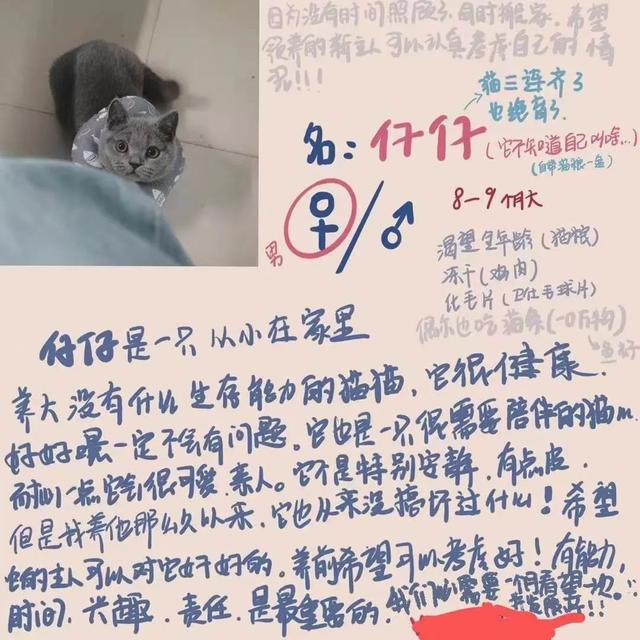 因为没有时间照顾了,同时搬家.希望
领养的新主人可以认真考虑自己的情
况!!!
猫三连齐了
也绝育了.
名:仔仔
(它不知道自己叫啥...)
(自带猫粮一盒)
男
♀/♂
8—9个月大
渴望全年龄(猫粮)
冻干(鸡肉)
化毛片(卫仕毛球片)
偶尔也吃猫条(一口万物)
鱼籽
仔仔是一只从小在家里
养大没有什么生存能力的猫猫,它很健康.
好好喂一定不会有问题.它也是一只很需要陪伴的猫
一点它很可爱.亲人。它不是特别安静.有点皮.
但是我养他那么久以来,它也从来没搞坏过什么!希望
它的主人可以对它好好的.养前希望可以考虑好!有能力,
时间,兴趣.责任.是最重要的.我们需要一个月看望一次.